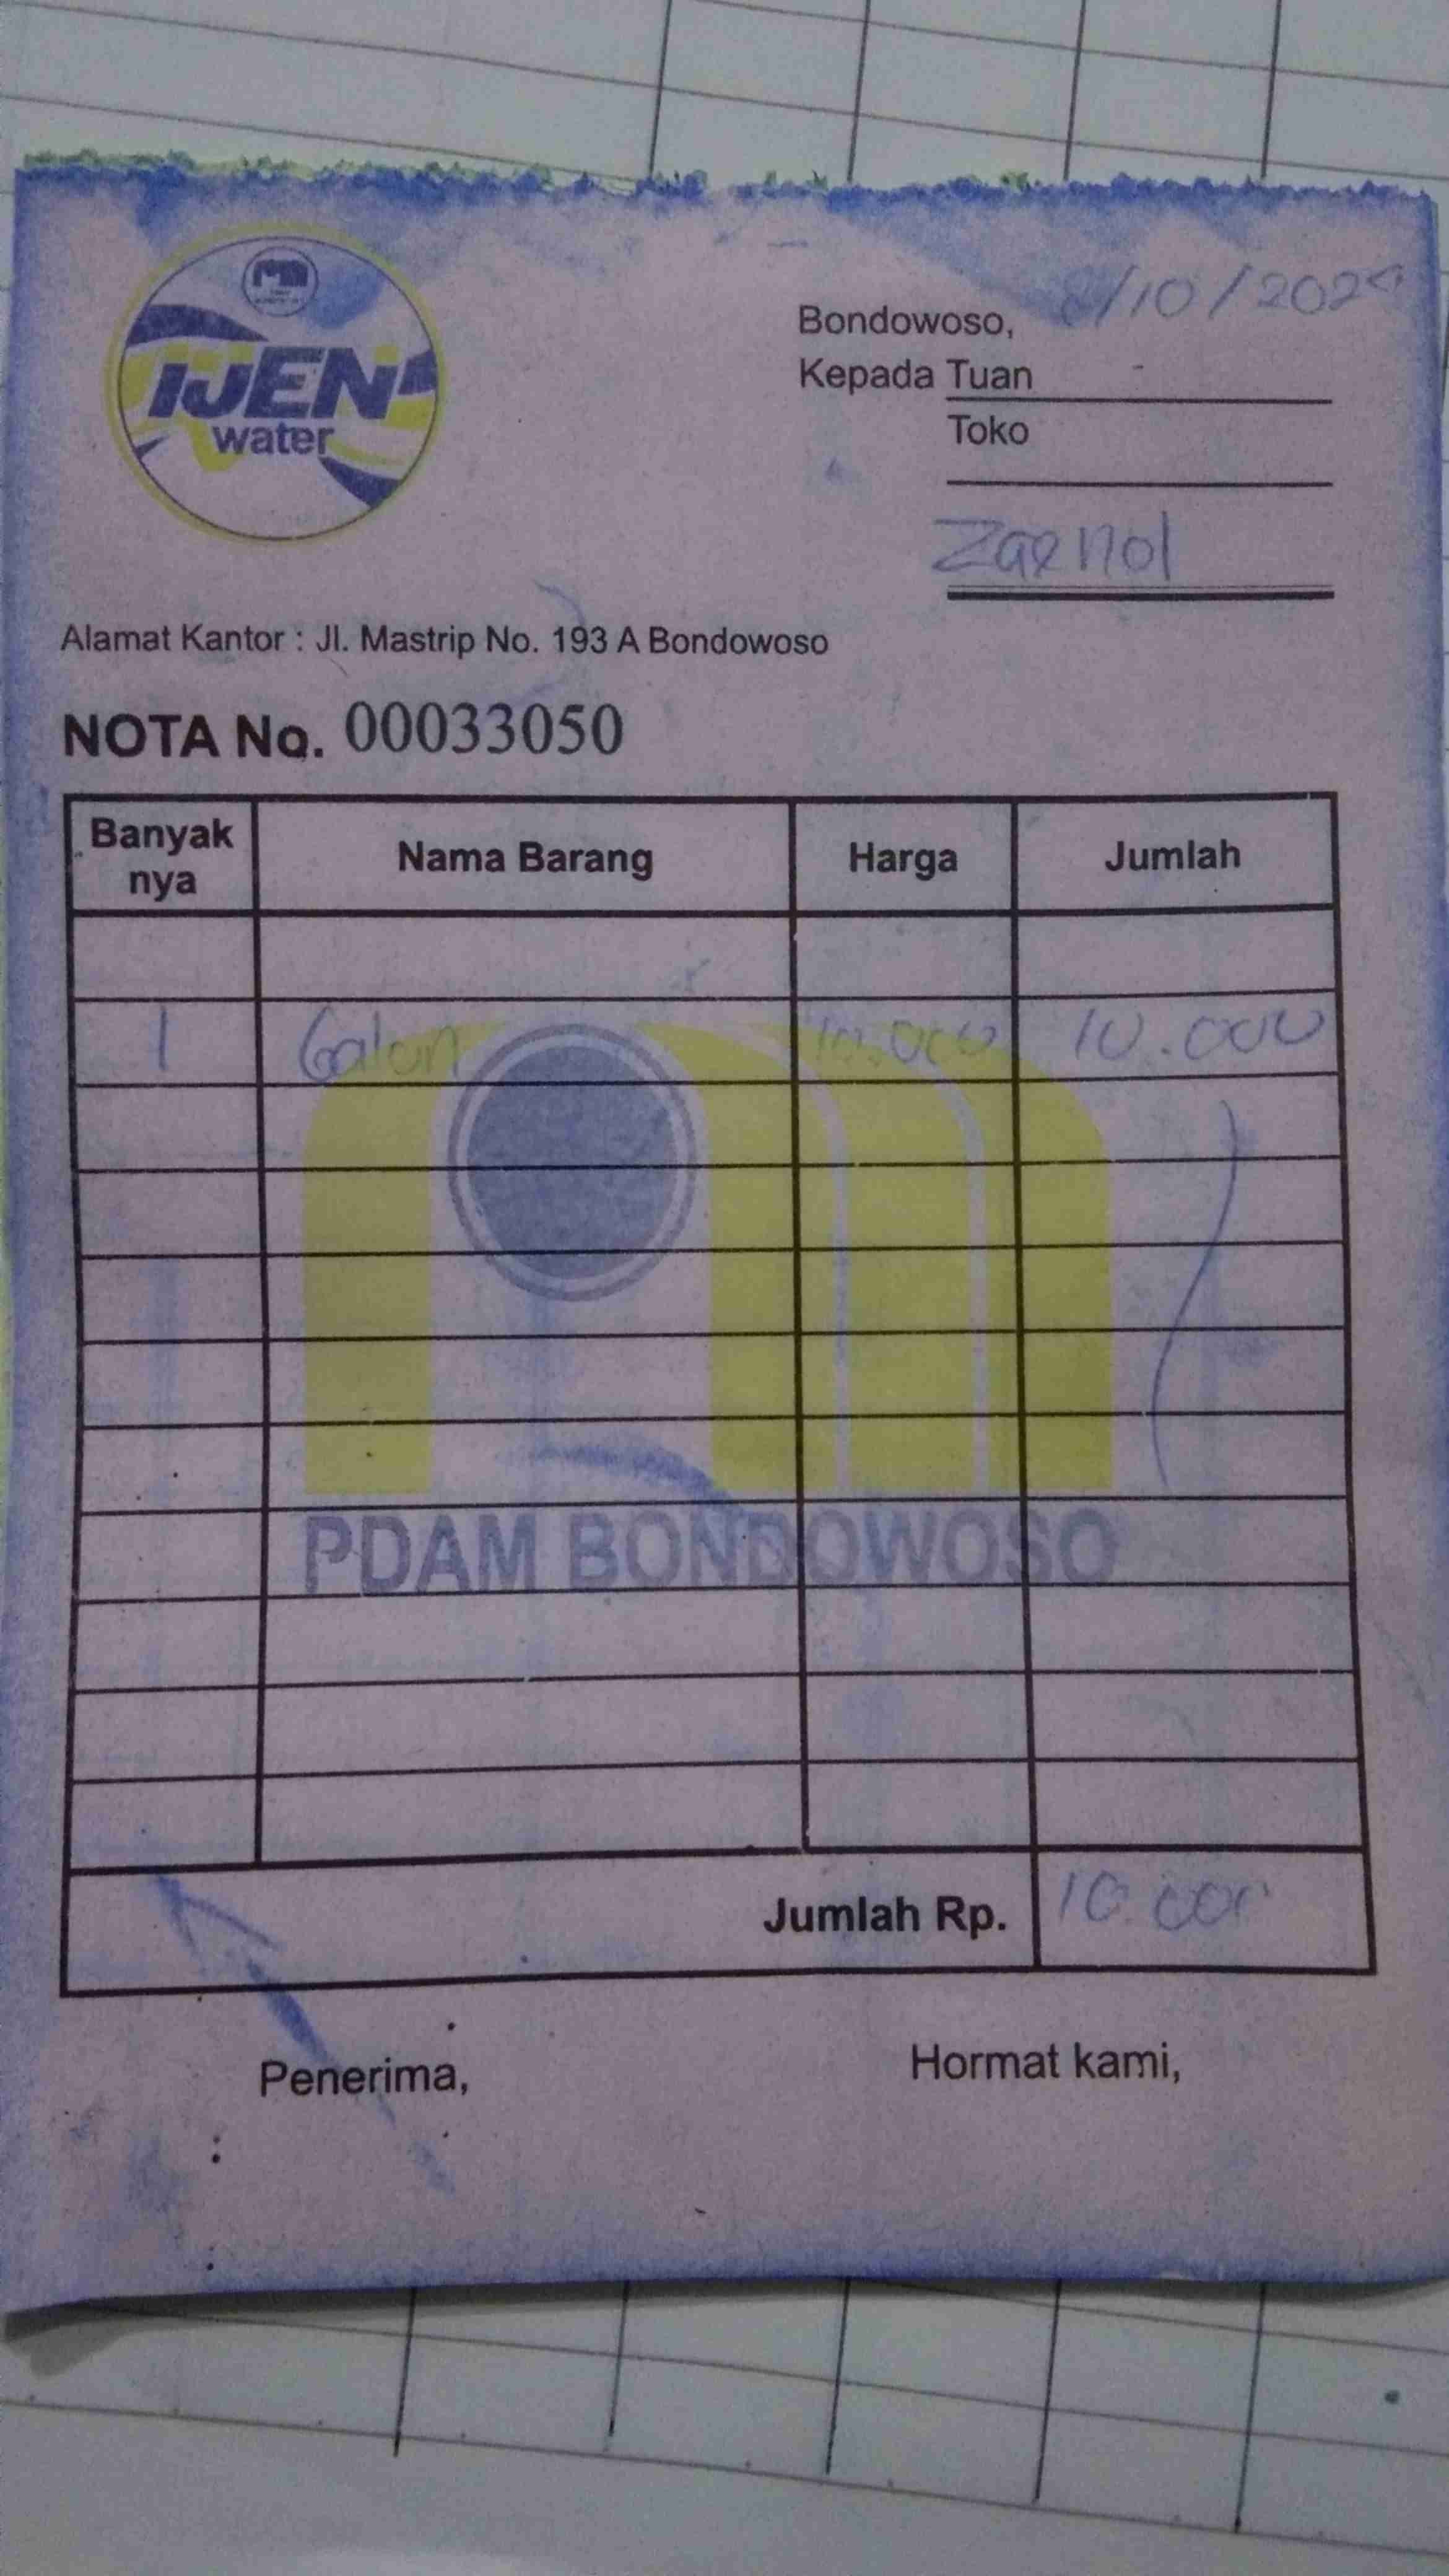 IJEN
water
Bondowoso, 8/10/2024
Kepada Tuan
Toko
Zaenol
Alamat Kantor : Jl. Mastrip No. 193 A Bondowoso
NOTA No. 00033050
Banyak nya Nama Barang Harga Jumlah
1 Galon 10.000 10.000
PDAM BONDOWOSO
Jumlah Rp. 10.000
Penerima, Hormat kami,